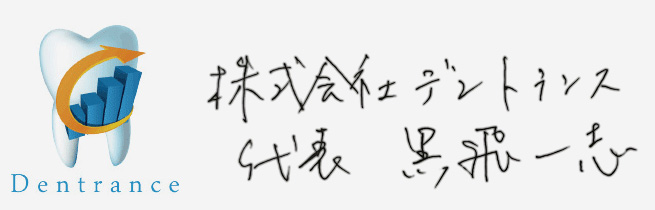 株式会社デントランス
代表 黒飛一志
Dentrance